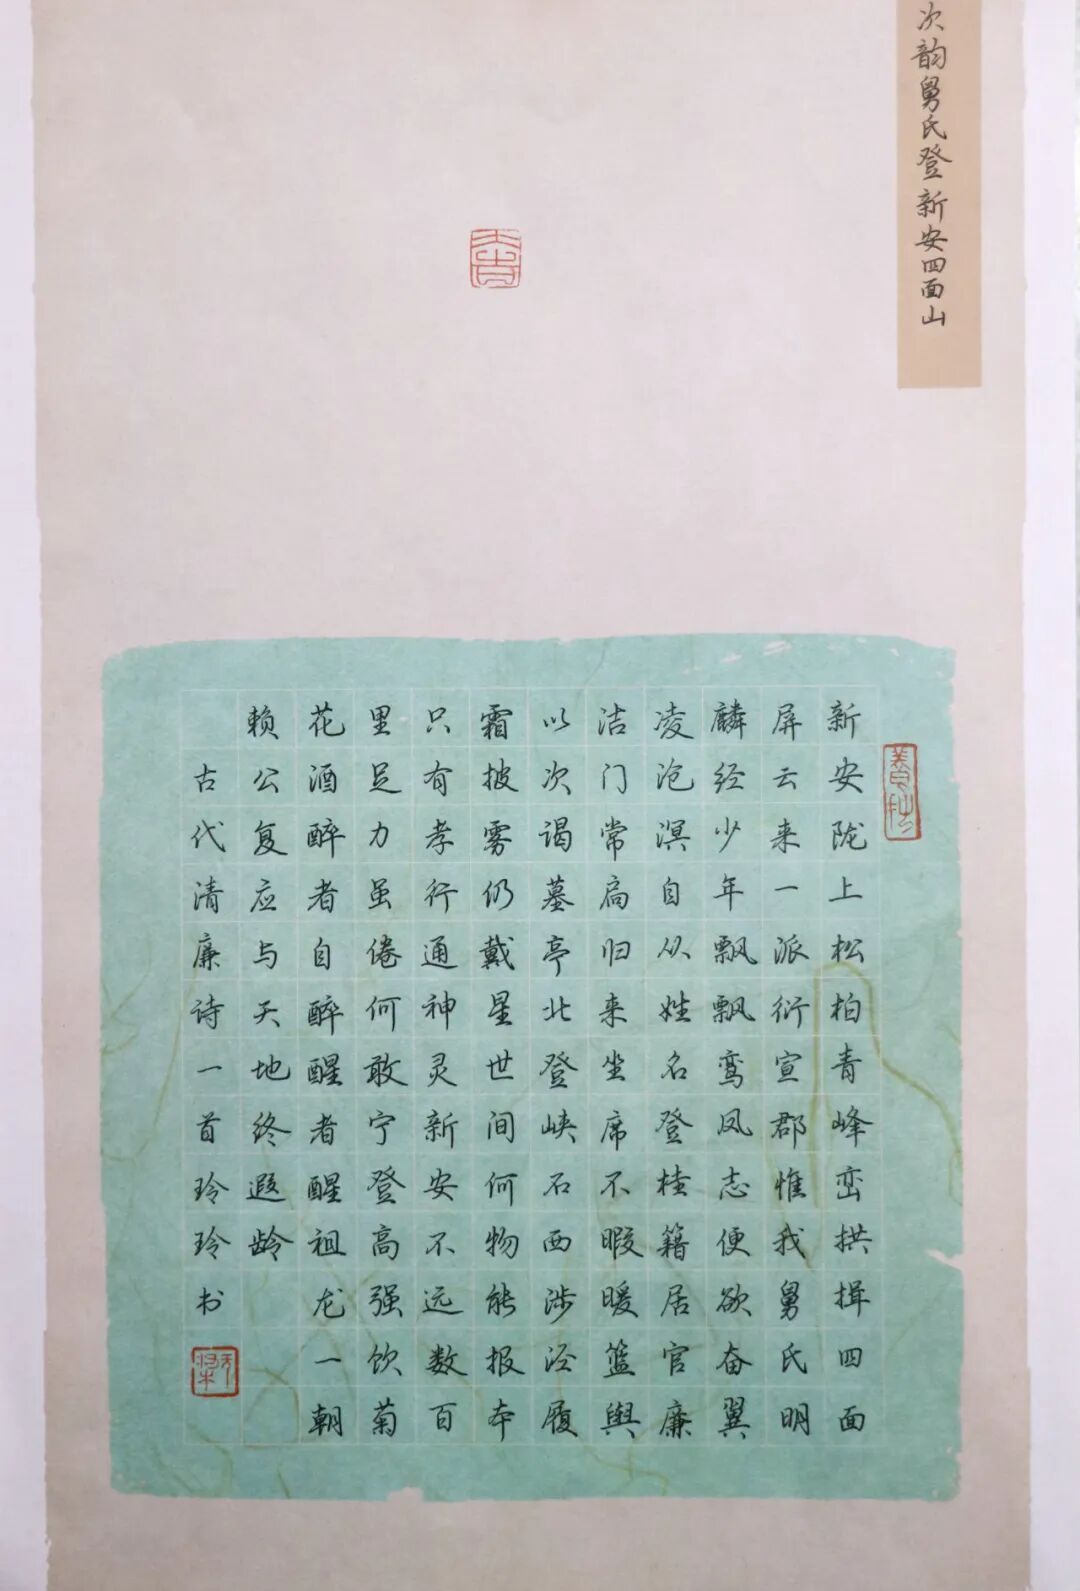 次韵舅氏登新安四面山
新安陇上松柏青峰峦拱揖四面
屏云来一派衍宣郡惟我舅氏明
麟经少年飘飘鸾凤志便欲奋翼
凌沧溟自从姓名登桂籍居官廉
洁门常扃归来坐席不暇暖篮舆
以次谒墓亭北登峡石西涉泾履
霜披雾仍戴星世间何物能报本
只有孝行通神灵新安不远数百
里足力虽倦何敢宁登高强饮菊
花酒醉者自醉醒者醒祖龙一朝
赖公复应与天地终遐龄
古代清廉诗一首玲玲书